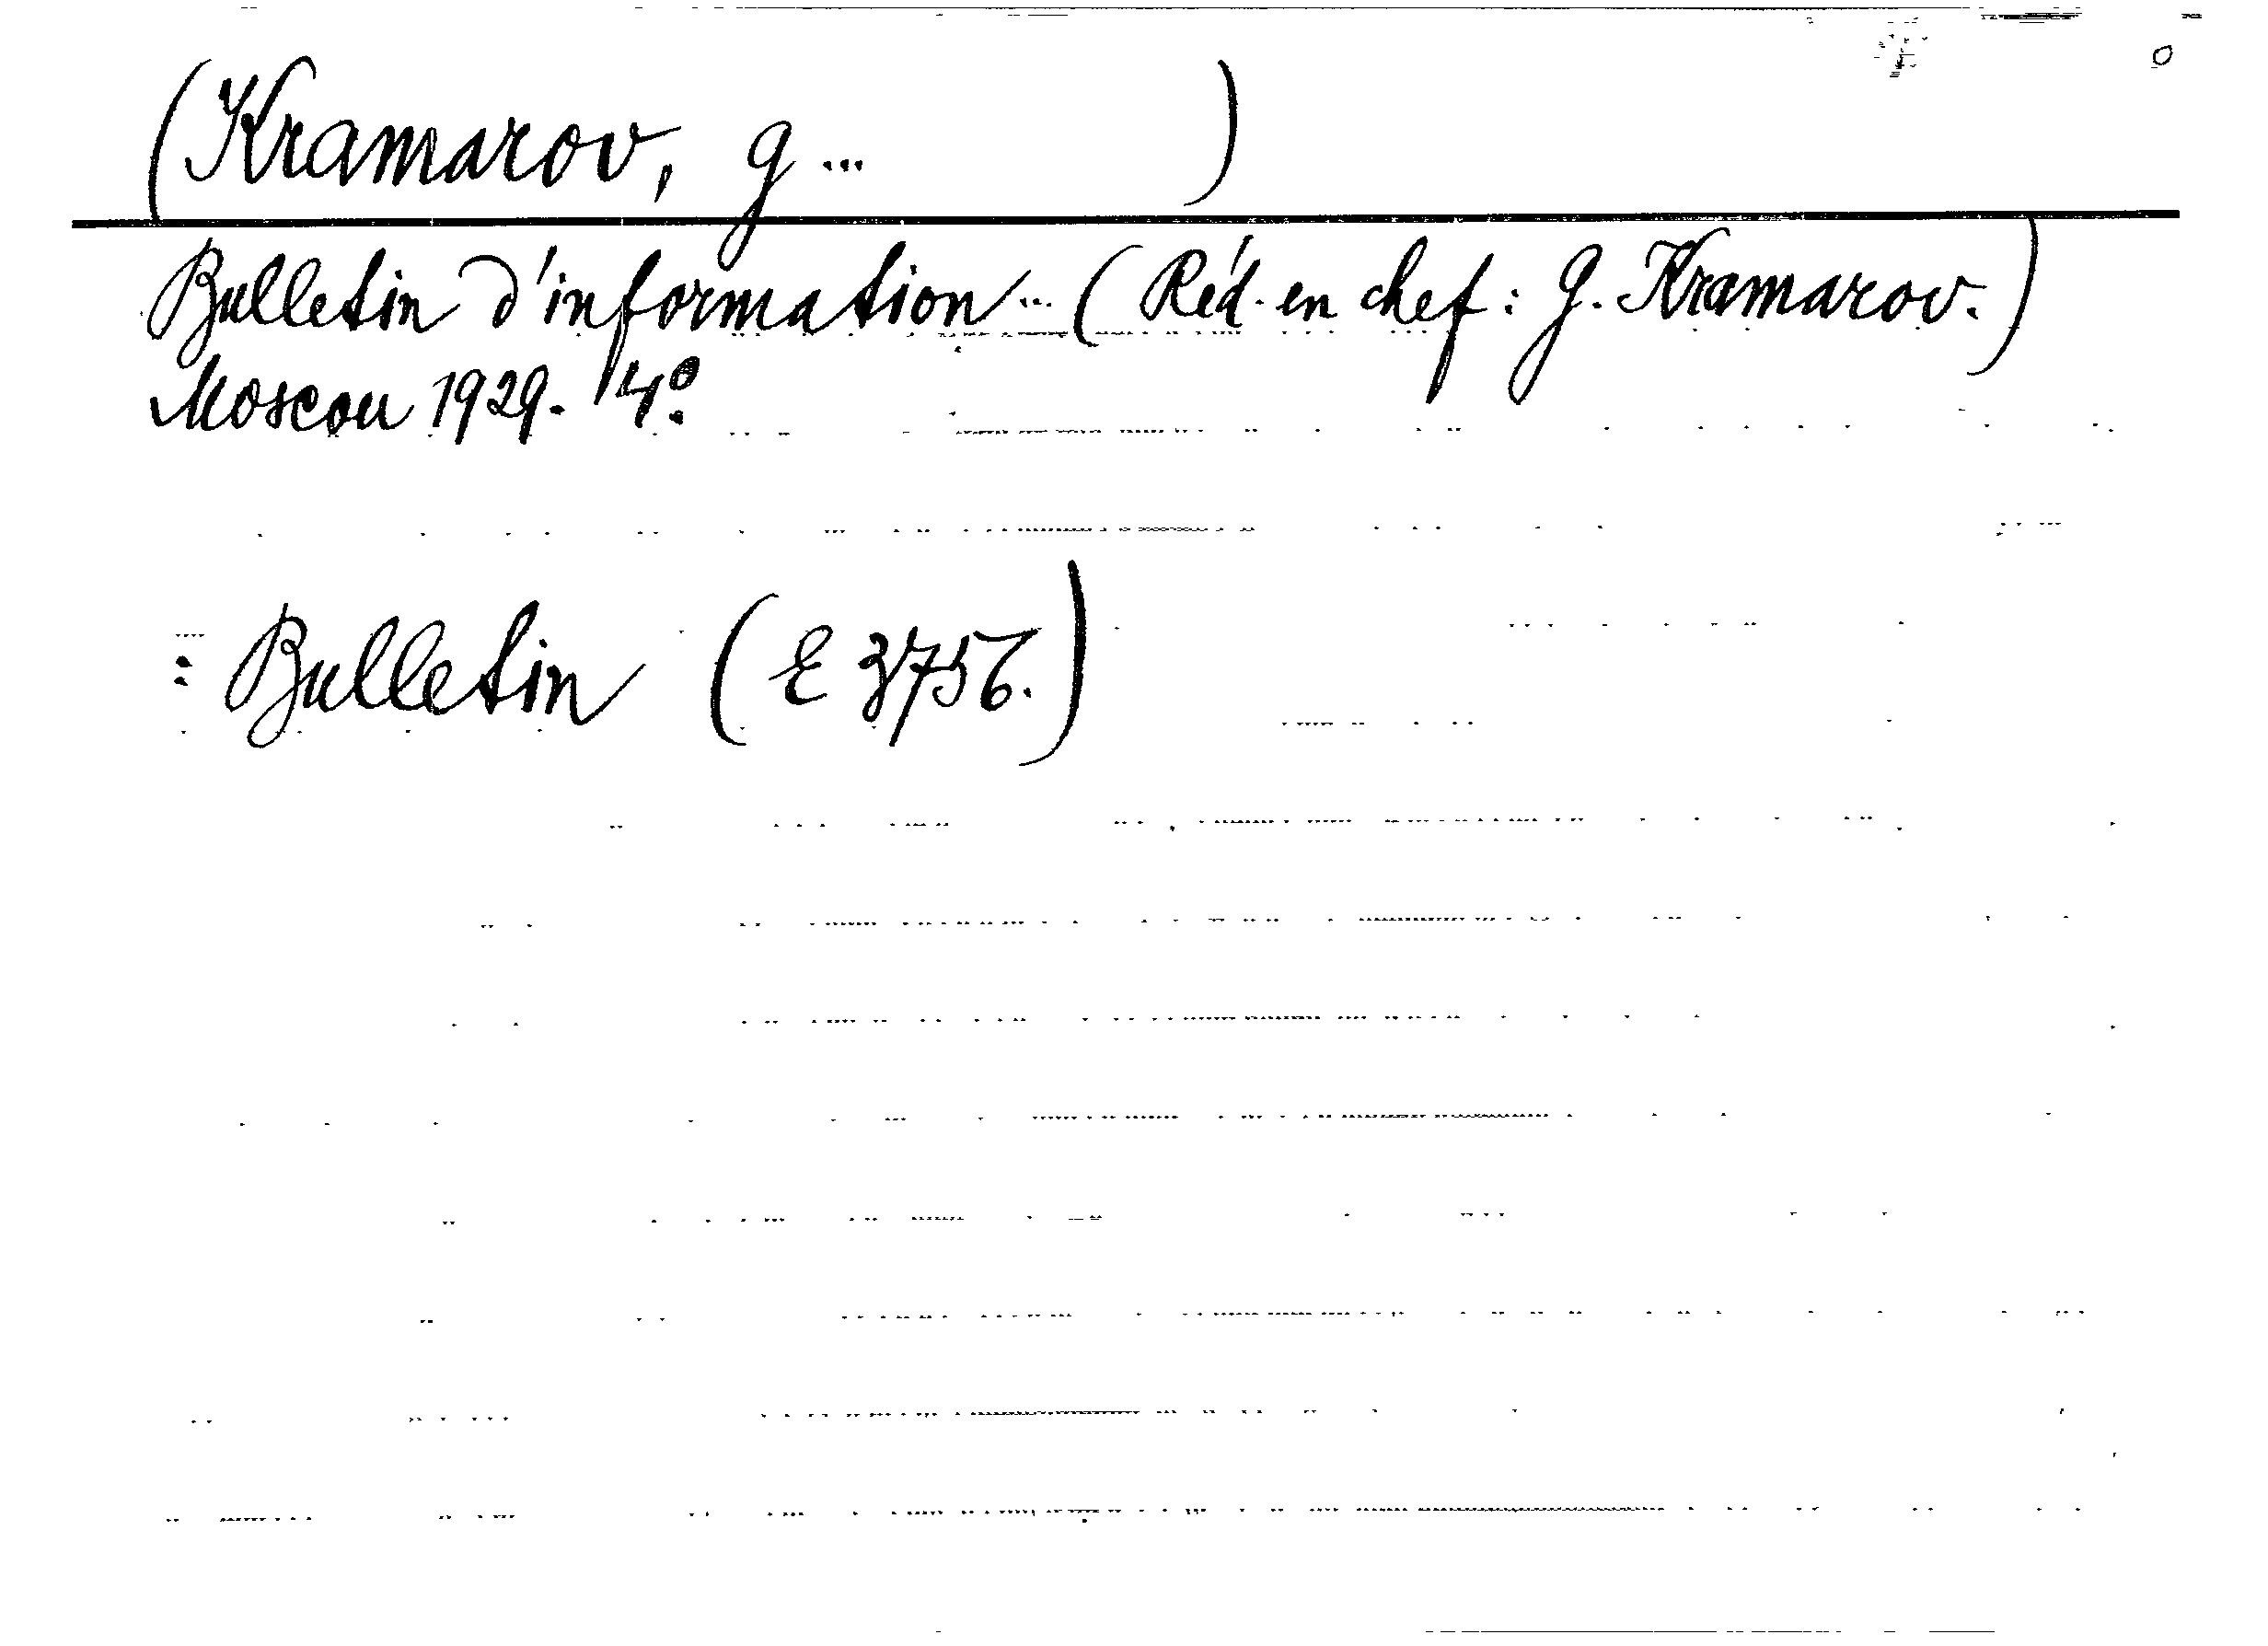 (Kramarov, G... )
Bulletin d'information... (Réd. en chef: G. Kramarov.)
Moscou 1929. 4º.
: Bulletin (E 3756.)